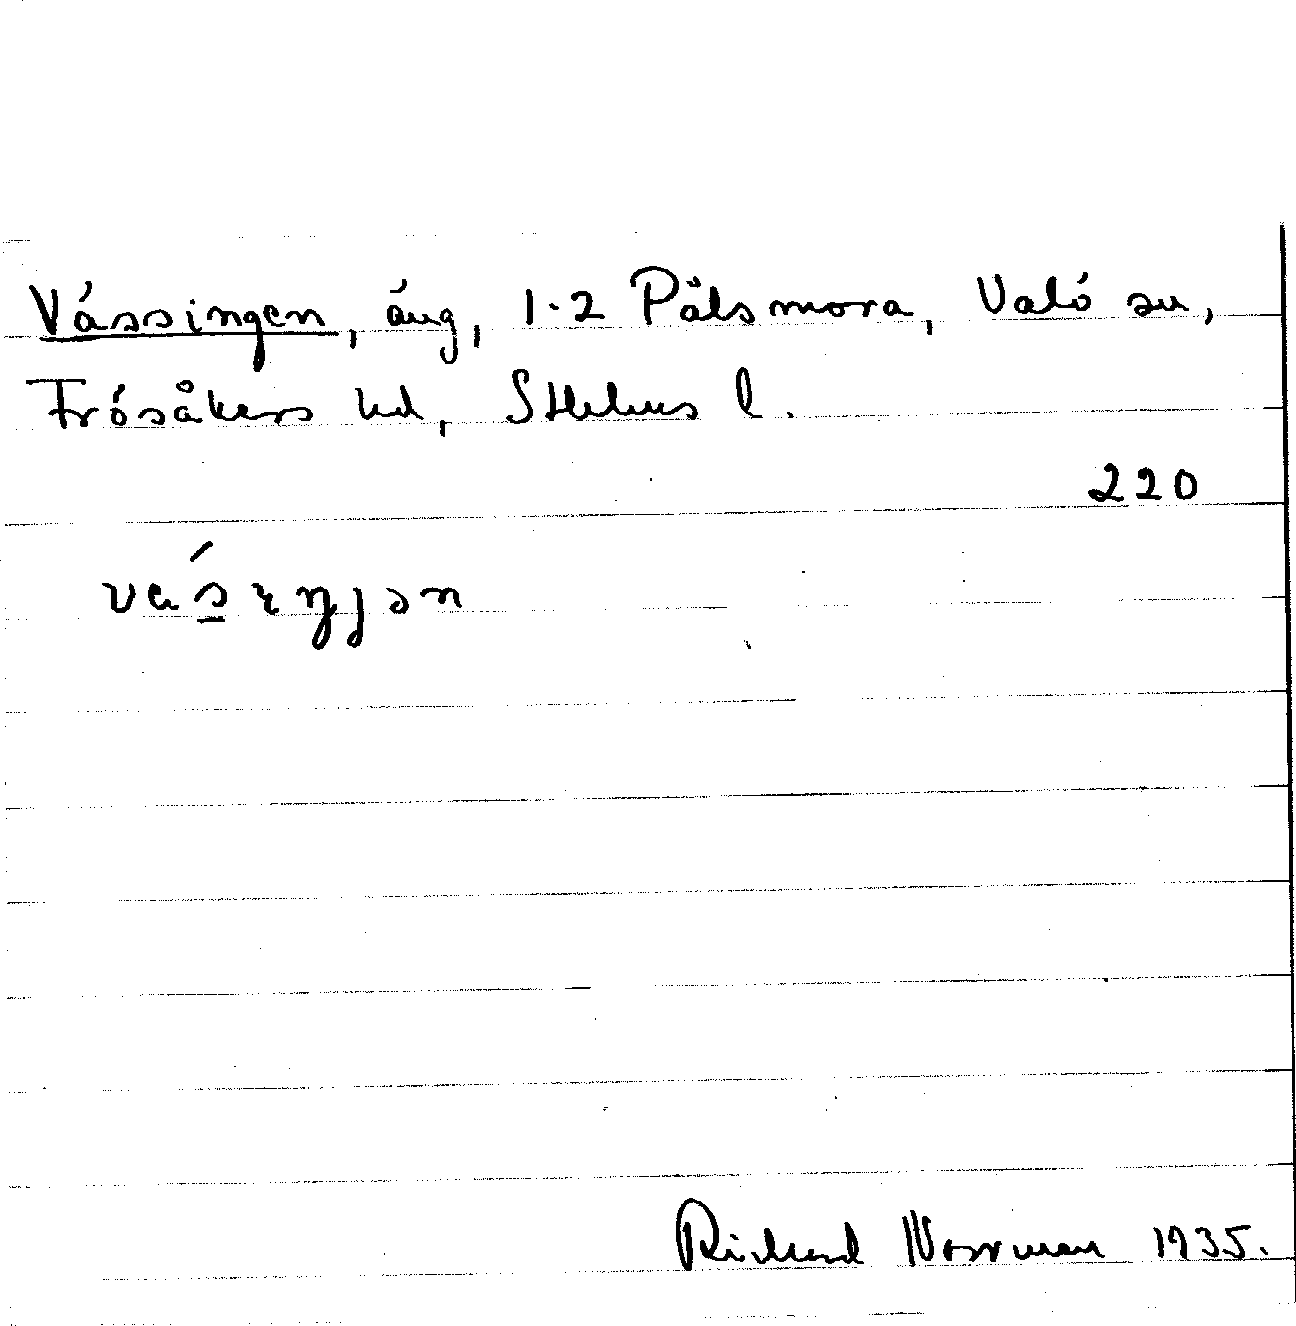 Vässingen, äng, 1-2 Pålsmora, Valö sn,
Frösåkers hd, Sthlms l.
220
Rickard Norrman 1935.